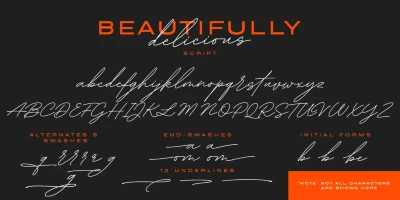 BEAUTIFULLY
delicious
SCRIPT
abcdefghijklmnopqrstuvwxyz
ABCDEFGHIJKLMNOPQRSTUVWXYZ
ALTERNATES & SWASHES
END-SWASHES
INITIAL FORMS
a a
om om
b b be
12 UNDERLINES
*NOTE: NOT ALL CHARACTERS
ARE SHOWN HERE